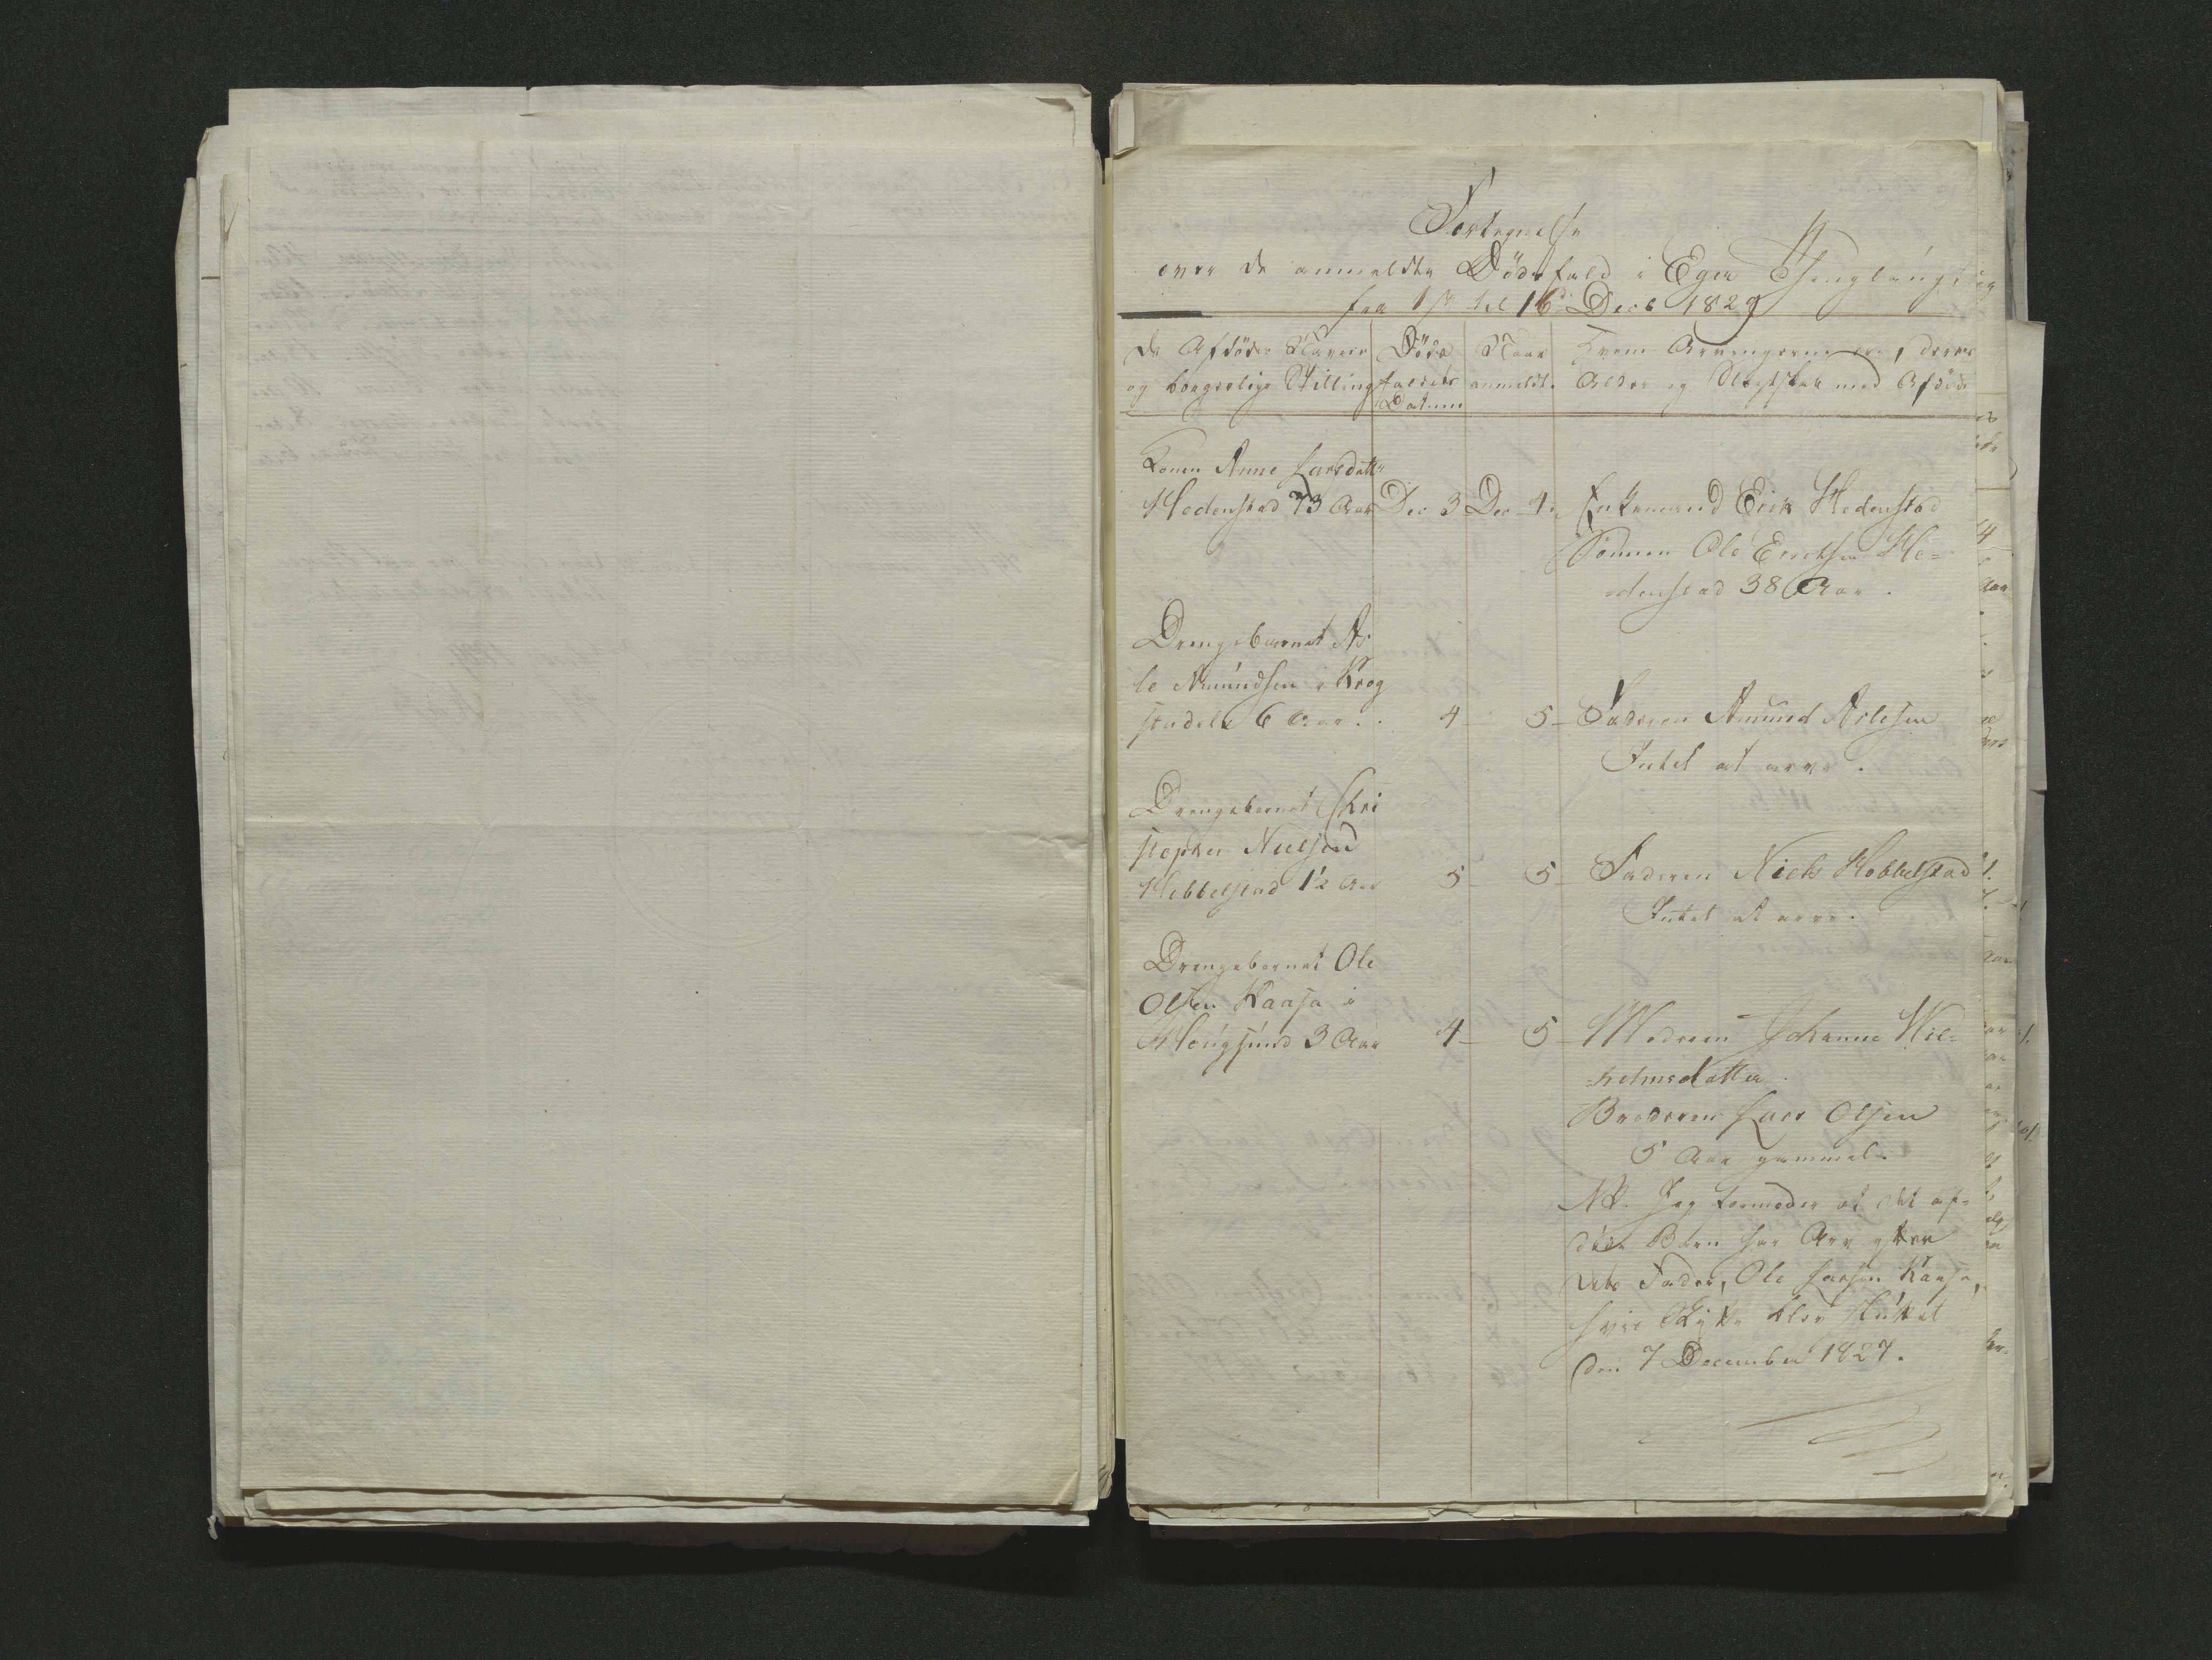 Fortegnelse
over de anmeldte Dödsfald i Eger Thinglaug,
fra 1ste til 16d. Decb 1829
De Afdödes Navne
og borgerlige Stilling
Döds
faldets
Datum
Naar
anmeldt.
Hvem Arvingerne ere, deres
Alder og Slegtskab med Afdöde
Konen Anne Larsdatter
Hedenstad 73 Aar Dec 3 Dec 4. Enkemand Erik Hedenstad
Sönnen Ole Ericksen He=
=denstad 38 Aar.
Drengebarnet As
le Amundsen i Krog
stadelv 6 Aar. 4 - 5 - Faderen Amund Aslesen
Intet at arve.
Drengebarnet Chri
stopher Nielsen
Hobbelstad 1½ Aar 5 - 5 - Faderen Niels Hobbelstad
Intet at arve.
Drengebarnet Ole
Olsen Kaasa i
Hougsund 3 Aar 4 - 5 - Moderen Johanne Wil=
=helmsdatter.
Broderen Lars Olsen
5 Aar gammel.
NB. Jeg formoder at det af=
döde Barn har Arv efter
dets Fader, Ole Larsen Kaasa,
hvis Skifte blev sluttet
den 7 December 1827.